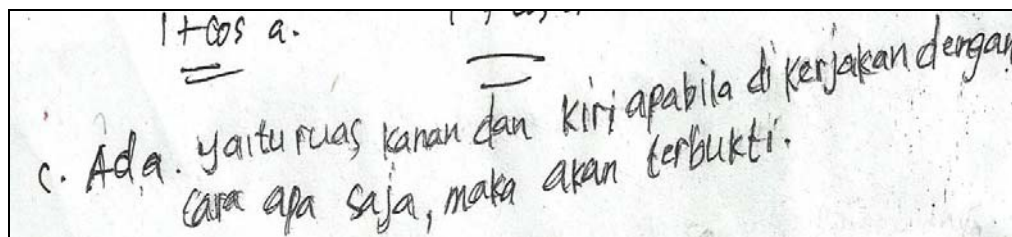 1 + cos a.
c. Ada. yaitu ruas kanan dan kiri apabila di kerjakan dengan
cara apa saja, maka akan terbukti.